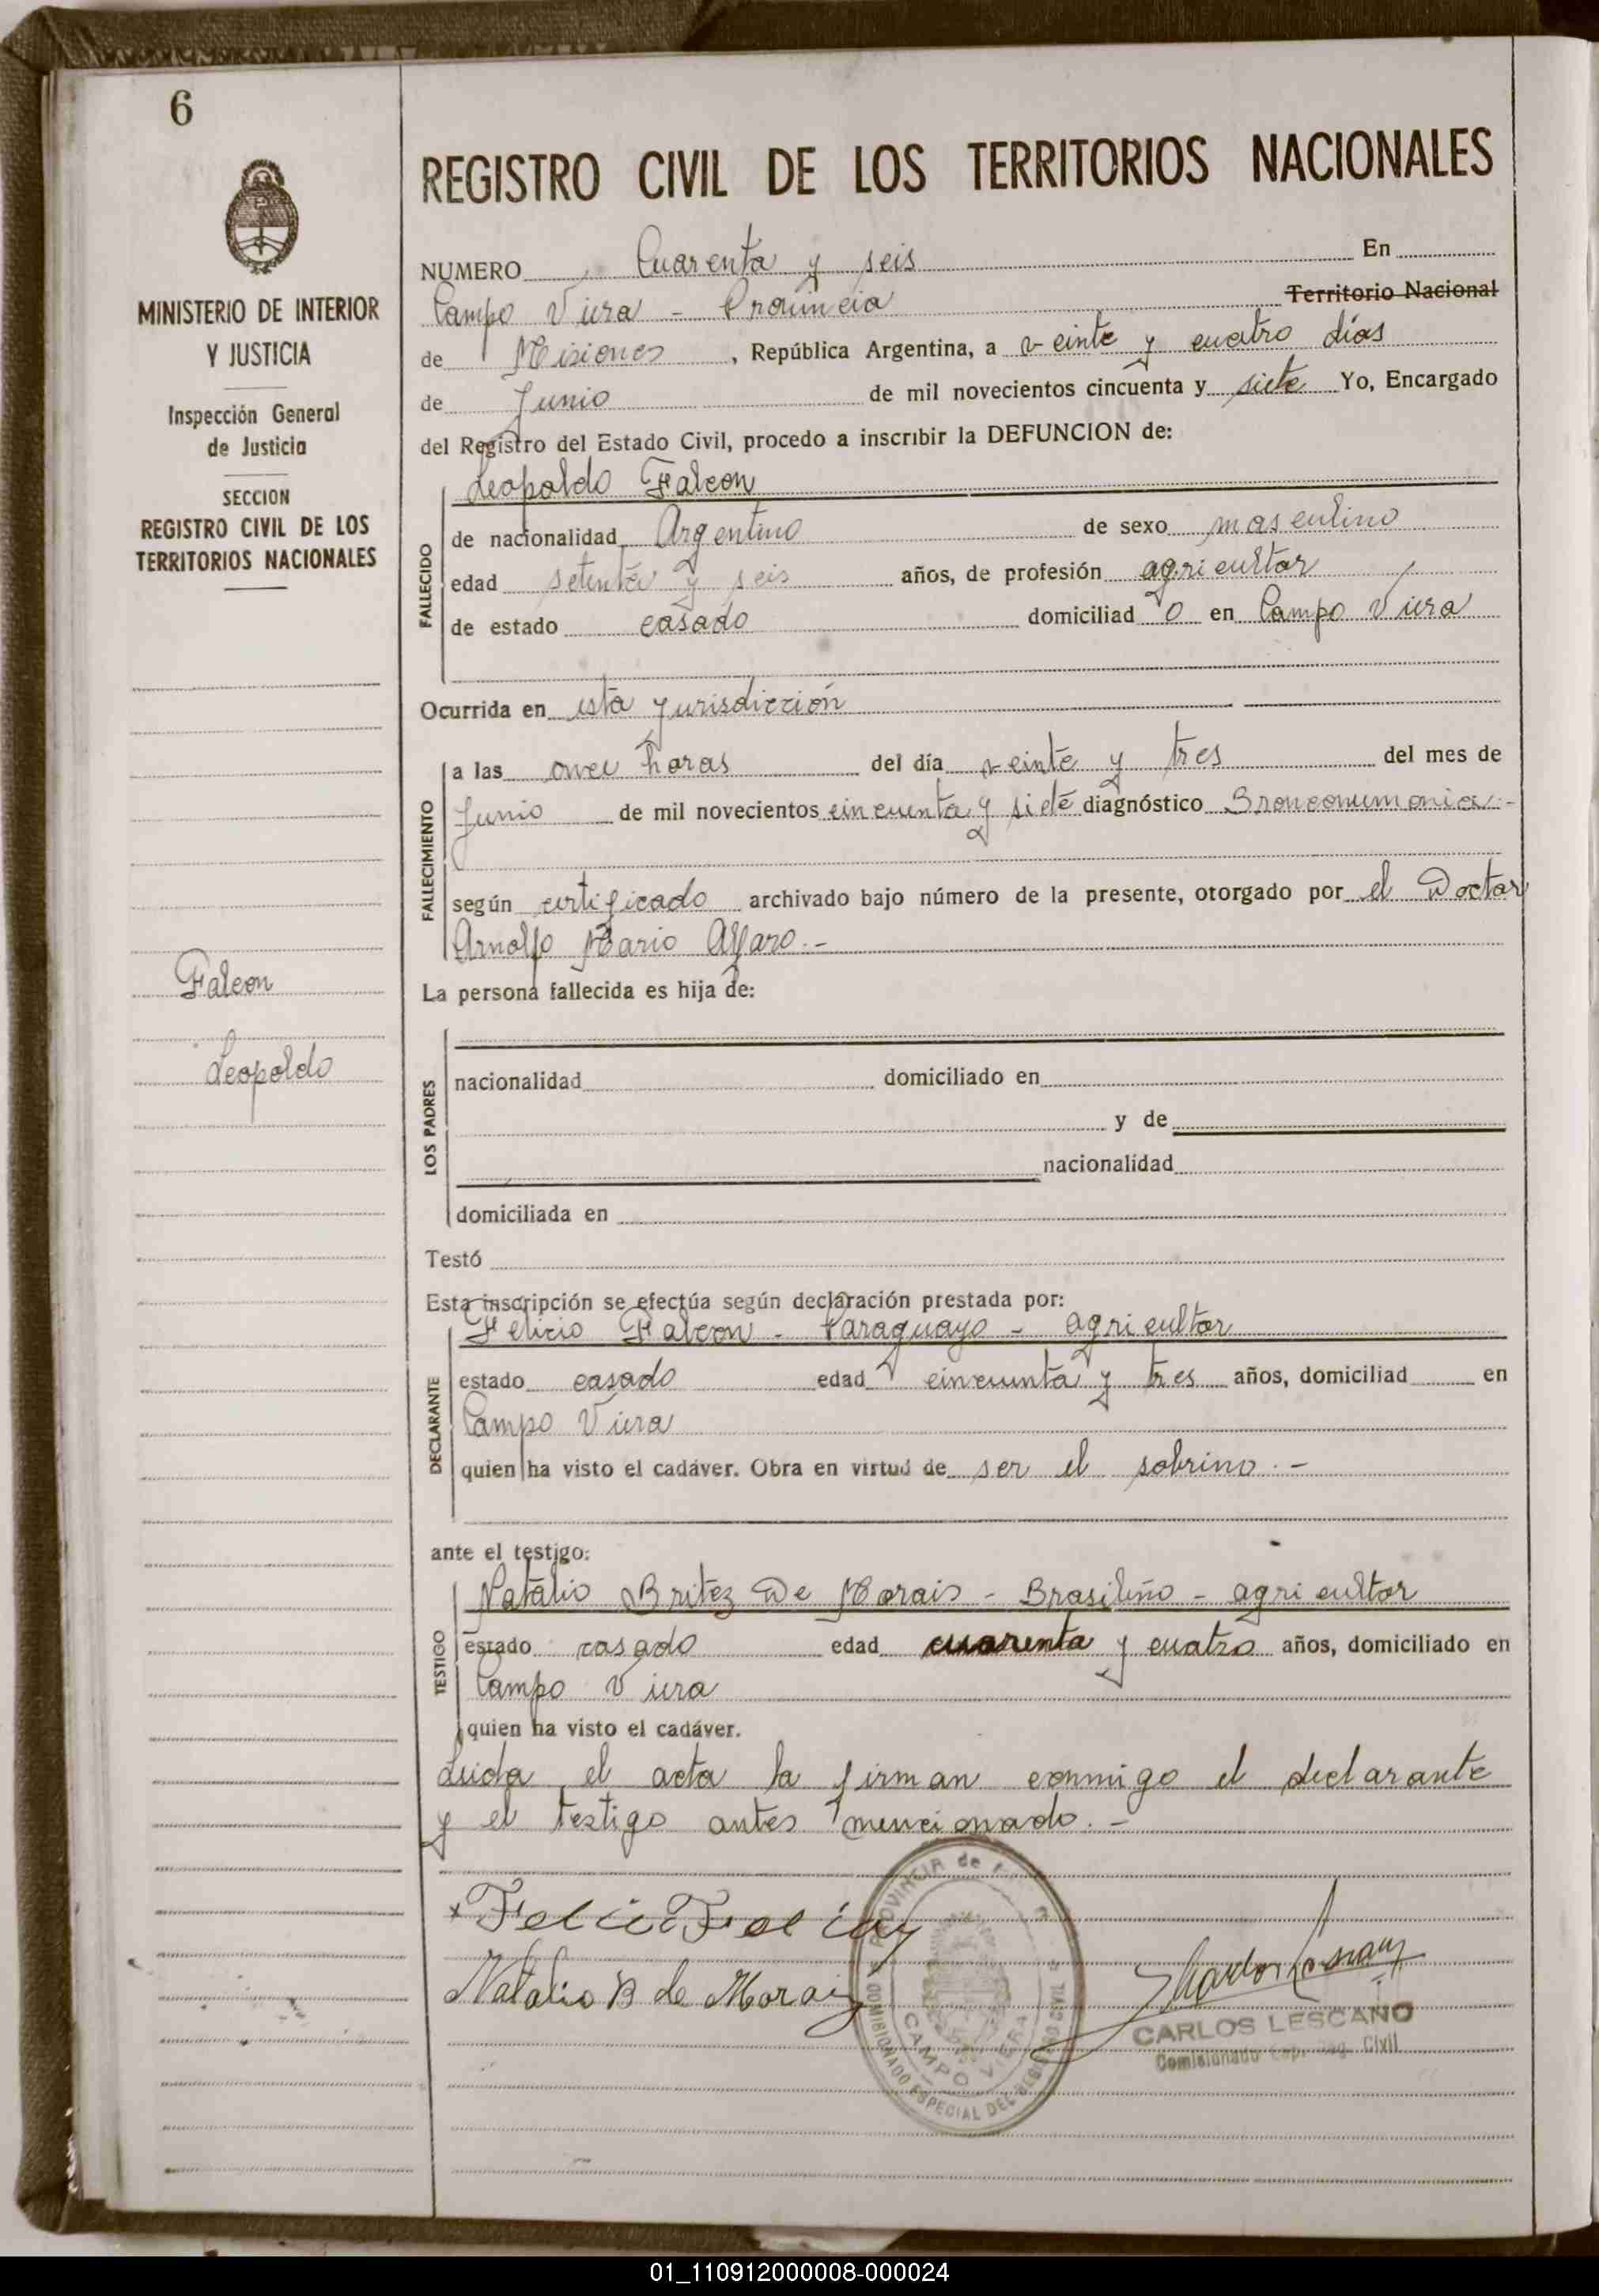 6
MINISTERIO DE INTERIOR
Y JUSTICIA
Inspección General
de Justicia
SECCION
REGISTRO CIVIL DE LOS
TERRITORIOS NACIONALES
Falcon
Leopoldo
REGISTRO CIVIL DE LOS TERRITORIOS NACIONALES
NUMERO Cuarenta y seis En
Campo Viera - Provincia Territorio Nacional
de Misiones, República Argentina, a veinte y cuatro días
de Junio de mil novecientos cincuenta y siete Yo, Encargado
del Registro del Estado Civil, procedo a inscribir la DEFUNCION de:
Leopoldo Falcon
FALLECIDO
de nacionalidad Argentino de sexo masculino
edad setenta y seis años, de profesión agricultor
de estado casado domiciliad o en Campo Viera
Ocurrida en esta jurisdicción
FALLECIMIENTO
a las once horas del día veinte y tres del mes de
Junio de mil novecientos cincuenta y siete diagnóstico Bronconumonia.-
según certificado archivado bajo número de la presente, otorgado por el Doctor
Arnolfo Mario Alfaro.-
La persona fallecida es hija de:
LOS PADRES
nacionalidad domiciliado en
y de
nacionalidad
domiciliada en
Testó
Esta inscripción se efectúa según declaración prestada por:
Felicio Falcon - Paraguayo - agricultor
DECLARANTE
estado casado edad cincuenta y tres años, domiciliad en
Campo Viera
quien ha visto el cadáver. Obra en virtud de ser el sobrino.-
ante el testigo:
Natalio Britez De Morais - Brasileño - agricultor
TESTIGO
estado casado edad cuarenta y cuatro años, domiciliado en
Campo Viera
quien ha visto el cadáver.
Leida el acta la firman conmigo el declarante
y el testigo antes mencionado.-
Natalio B de Morais
PROVINCIA de
COMISIONADO ESPECIAL DEL REGISTRO CIVIL
CAMPO VIERA
CARLOS LESCANO
Comisionado Esp. Reg. Civil
01_110912000008-000024